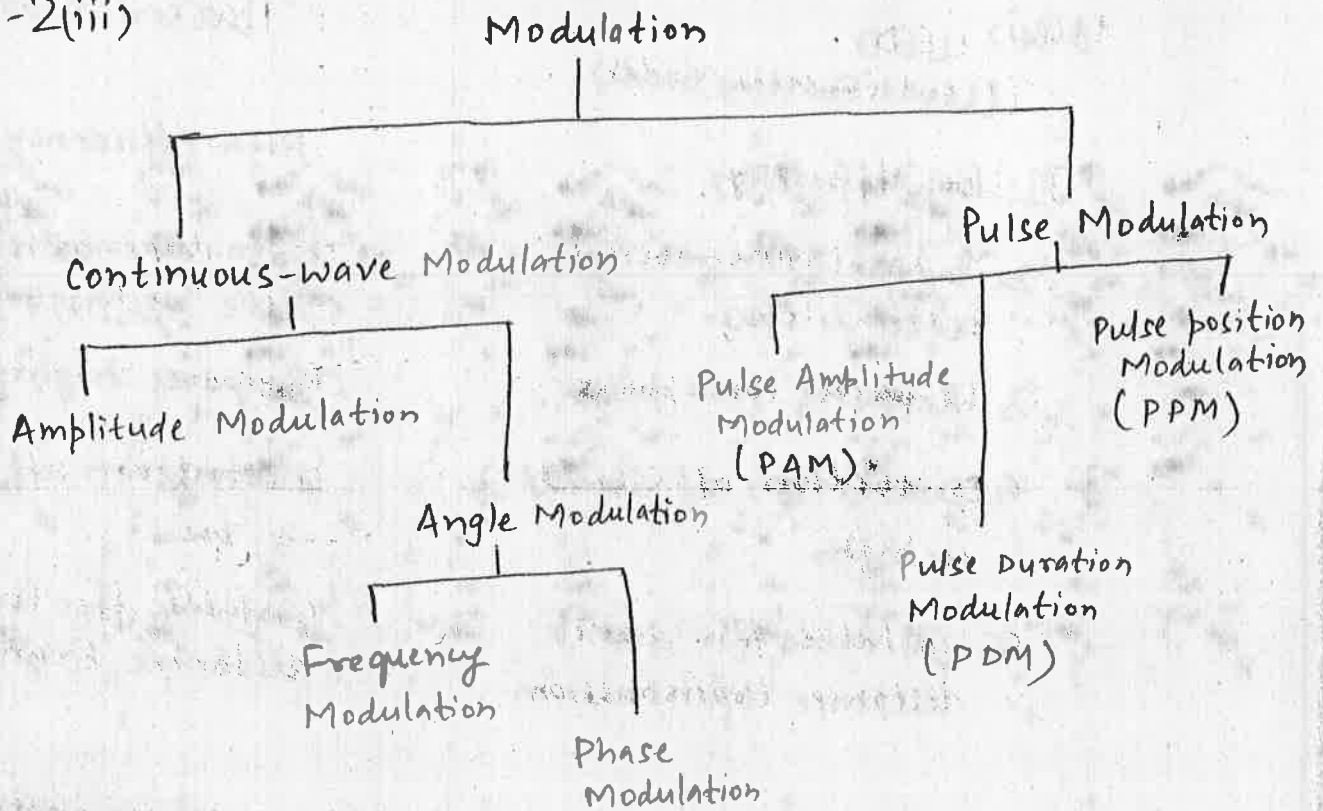 -2(iii)
Modulation
Continuous-wave Modulation
Pulse Modulation
Amplitude Modulation
Angle Modulation
Frequency
Modulation
Phase
Modulation
Pulse Amplitude
Modulation
(PAM)
Pulse Duration
Modulation
(PDM)
Pulse position
Modulation
(PPM)